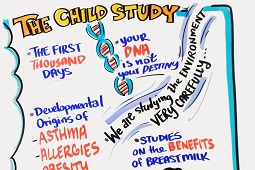 THE CHILD STUDY
• THE FIRST
THOUSAND
DAYS
• YOUR
DNA
is not
your DESTINY
We are studying the ENVIRONMENT
VERY CAREFULLY...
• Developmental
Origins of
ASTHMA
ALLERGIES
OBESITY
• STUDIES
ON the BENEFITS
OF BREASTMILK